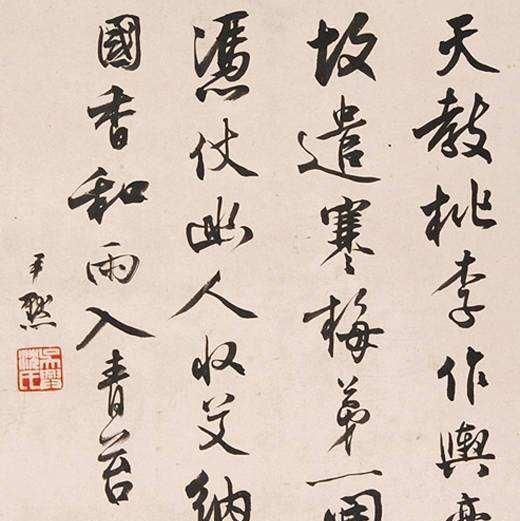 天教桃李作輿臺
故遣寒梅第一開
憑仗幽人收艾納
國香和雨入青苔
尹默